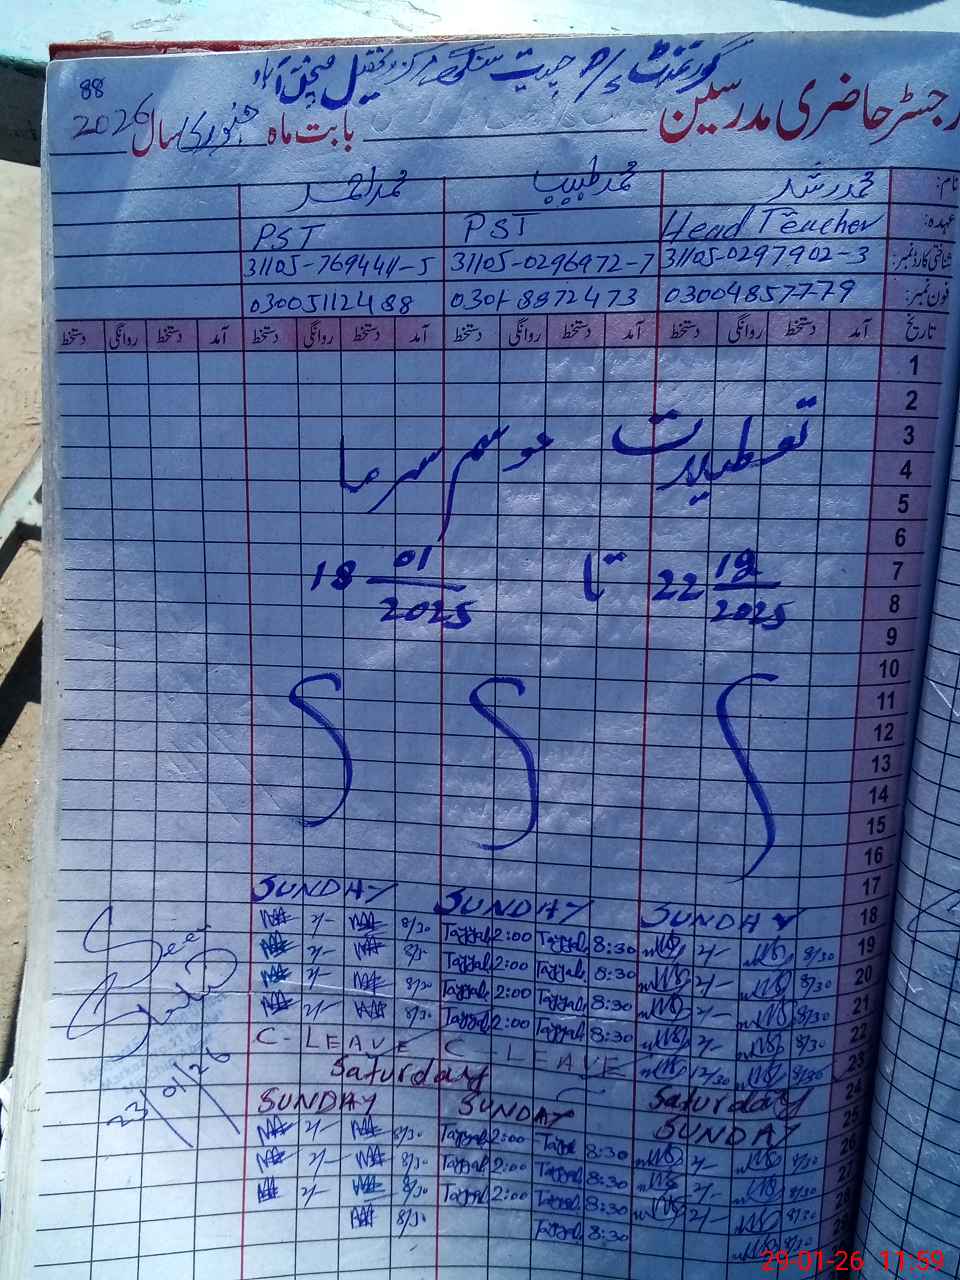 88
گورنمنٹ P/S
رجسٹر حاضری مدرسین بابت ماہ جنوری سال 2026
نام: محمد رشد محمد طبیب محمد احمد
عہدہ: Head Teacher PST PST
شناختی کارڈ نمبر: 31105-0297902-3 31105-0296972-7 31105-769444-5
فون نمبر: 03004857779 0301 8872473 03005112488
تاریخ آمد دستخط روانگی دستخط آمد دستخط روانگی دستخط آمد دستخط روانگی دستخط آمد دستخط روانگی دستخط
1
2
3
تعطیلات موسم سرما
4
5
6
22 12/2025 تا 18 01/2025
7
8
9
10
11
12
13
14
15
16
17
18 SUNDAY SUNDAY SUNDAY
19 8/30 2/- 8:30 2:00 8/30 2/-
20 8/30 2/- 8:30 2:00 8/30 2/-
21 8/30 2/- 8:30 2:00 8/30 2/-
22 8/30 2/- 8:30 2:00 8/30 2/-
23 8/30 12/30 C-LEAVE C-LEAVE
24 Saturday Saturday
25 SUNDAY SUNDAY SUNDAY
26 8/30 2/- 8:30 2:00 8/30 2/-
27 8/30 2/- 8:30 2:00 8/30 2/-
28 8/30 2/- 8:30 2:00 8/30 2/-
29 8/30 8:30 8/30
23/01/26
29-01-26 11:59